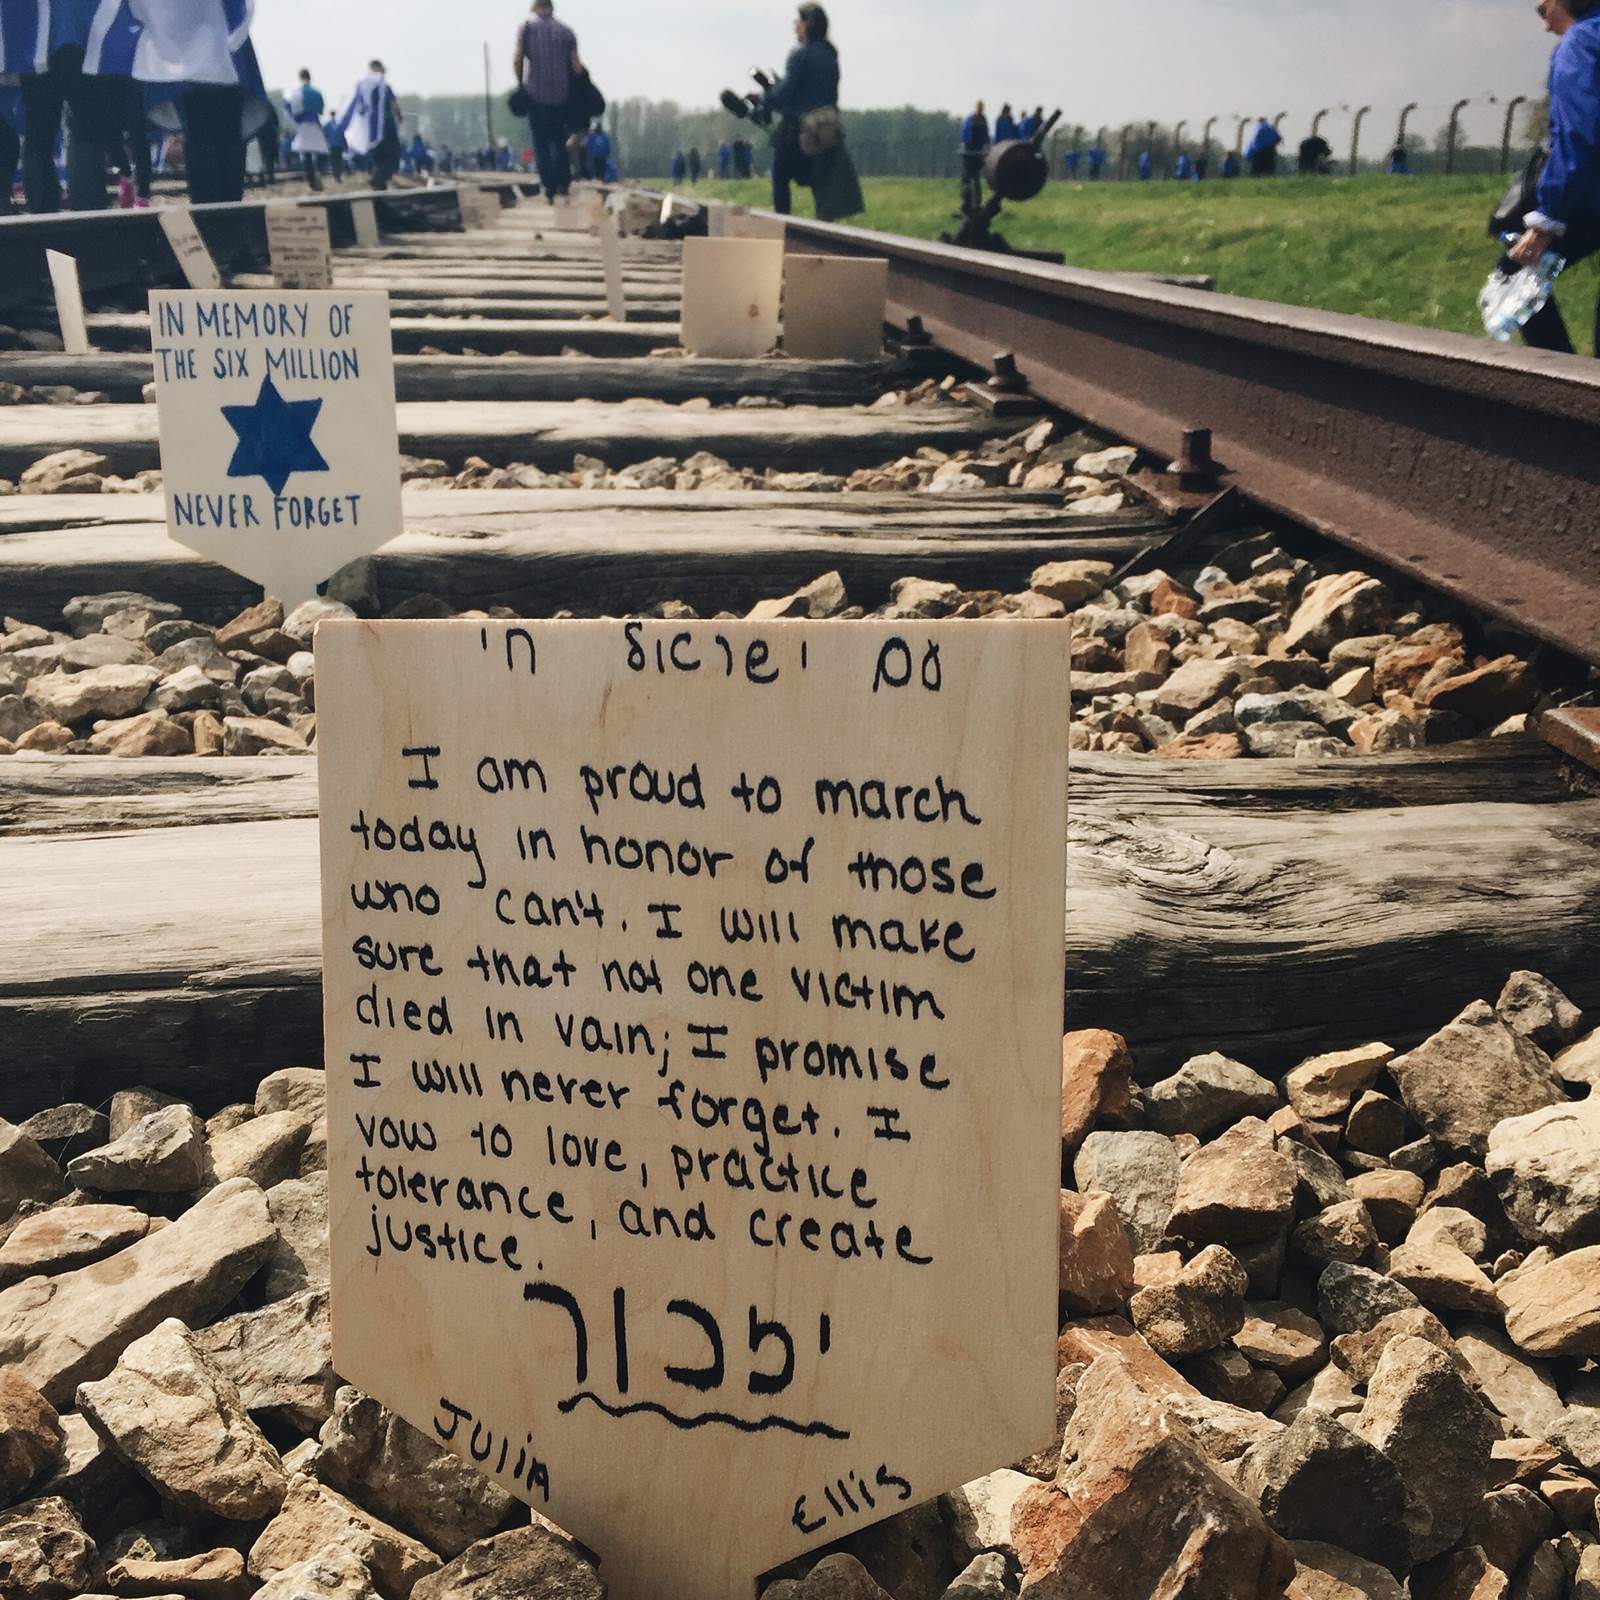 IN MEMORY OF
THE SIX MILLION
NEVER FORGET
עם ישראל חי
I am proud to march
today in honor of those
who can't. I will make
sure that not one victim
died in vain; I promise
I will never forget. I
vow to love, practice
tolerance, and create
justice.
יזכור
Julia Ellis